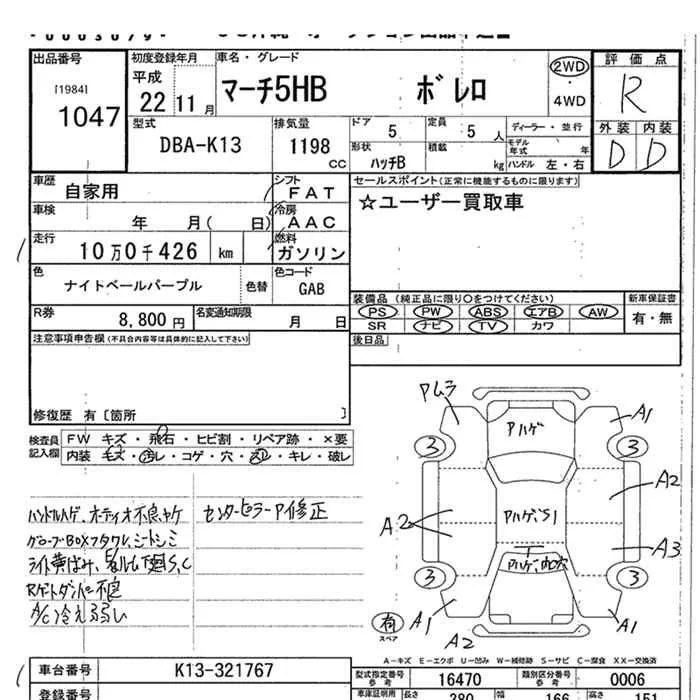 出品番号 初度登録年月 車名・グレード 評価点
[1984] 1047
平成 22 11月
マーチ5HB ボレロ
2WD
4WD
R
型式 DBA-K13
排気量 1198 CC
ドア 5
定員 5人
ディーラー・並行
外装 内装
D D
形状 ハッチB
積載 kg
モデル年式 年
ハンドル 左・右
車歴 自家用
シフト FAT
セールスポイント(正常に機能するものに限ります)
車検 年 月( 日)
冷房 AAC
☆ユーザー買取車
走行 10万0千426 km
燃料 ガソリン
色 ナイトベールパープル
色替
色コード GAB
装備品(純正品に限り○をつけてください) 新車保証書
PS PW ABS エアB AW 有・無
SR ナビ TV カワ
R券 8,800円
名変通知期限 月 日
後日品
注意事項申告欄(不具合内容等は具体的に記入して下さい)
修復歴 有〔箇所 〕
検査員記入欄
FW キズ・飛石・ヒビ割・リペア跡・×要
内装 キズ・汚レ・コゲ・穴・スレ・キレ・破レ
ハンドルハゲ、オーディオ不良、ヤケ
グローブBOXフタワレ、シートシミ
A/C冷え弱い
センターピラーP修正
Pムラ
Pハゲ
A1
3 3
A2
A2
Pハゲ、S1
A3
3 3
A1
A1
A2
有
スペア
A-キズ E-エクボ U-凹み W-補修跡 S-サビ C-腐食 XX-交換済
車台番号 K13-321767
型式指定番号 参考 16470
類別区分番号 参考 0006
登録番号
車庫証明用 長さ 380 幅 166 高さ 151